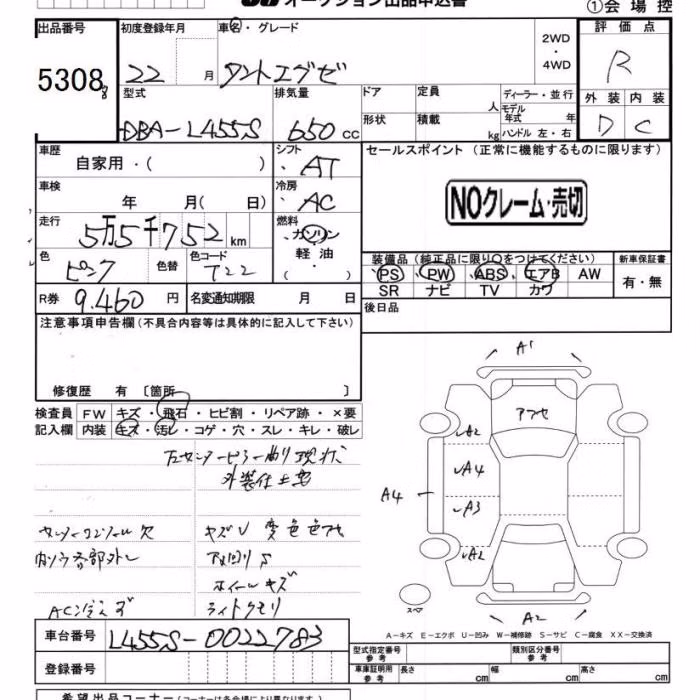 オークション出品申込書
①会場控
出品番号 初度登録年月 車名・グレード 評価点
5308 22 月 タントエグゼ 2WD・4WD R
型式 排気量 ドア 定員 人 ディーラー・並行 外装 内装
DBA-L455S 650 cc 形状 積載 kg モデル年式 年 ハンドル 左・右 D C
車歴 自家用・( ) シフト AT セールスポイント (正常に機能するものに限ります)
車検 年 月( 日) 冷房 AC NOクレーム・売切
走行 5万5千752 km 燃料 ガソリン 軽油 ( ・ )
色 ピンク 色替 色コード T22
装備品(純正品に限り○をつけてください) 新車保証書
PS PW ABS エアB AW 有・無
SR ナビ TV カワ
R券 9.460 円 名変通知期限 月 日 後日品
注意事項申告欄(不具合内容等は具体的に記入して下さい)
修復歴 有 〔箇所 〕
検査員 FW キズ・飛石・ヒビ割・リペア跡・×要
記入欄 内装 キズ・汚レ・コゲ・穴・スレ・キレ・破レ
左センターピラー曲り現状
A1
A2
A4
A4
A3
A2
A2
キズU 変色色アセ
内ソウ各部外し
ホイールキズ
ライトクモリ
A-キズ E-エクボ U-凹み W-補修跡 S-サビ C-腐食 XX-交換済
車台番号 L455S-0022783
登録番号
型式指定番号 参考 類別区分番号 参考
車庫証明用 参考 長さ cm 幅 cm 高さ cm
希望出品コーナー